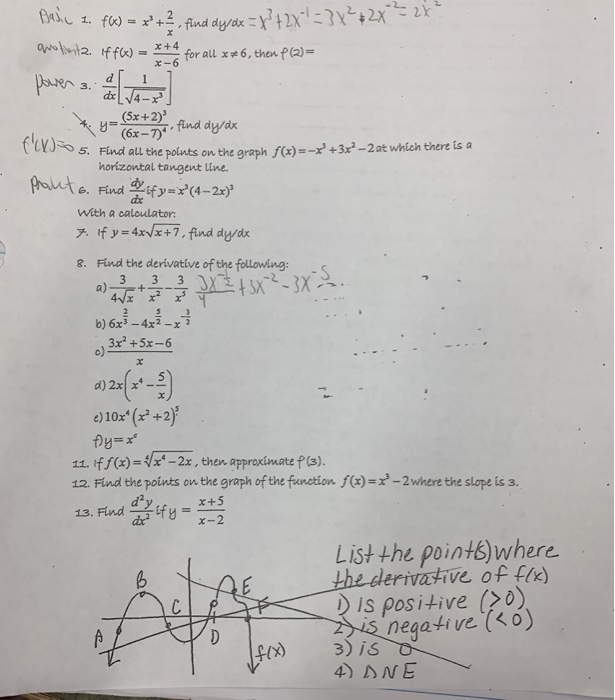 Basic 1. f(x) = x³ + 2/x, find dy/dx = x³ + 2x⁻¹ = 3x² + 2x⁻² = 2x²
quotient 2. If f(x) = (x+4)/(x−6) for all x ≠ 6, then f'(2) =
power 3. d/dx [1/√(4−x³)]
4. y = (5x+2)³/(6x−7)⁴, find dy/dx
f'(x)=0 5. Find all the points on the graph f(x) = −x³ + 3x² − 2 at which there is a
horizontal tangent line.
Product 6. Find dy/dx if y = x³(4−2x)³
With a calculator:
7. If y = 4x√(x+7), find dy/dx
8. Find the derivative of the following:
a) 3/(4√x) + 3/x² − 3/x⁵ 3x^(-1/2)/4 + 3x⁻² − 3x⁻⁵
b) 6x^(2/3) − 4x^(5/2) − x^(-3/2)
c) (3x² + 5x − 6)/x
d) 2x(x⁴ − 5/x)
e) 10x⁴(x² + 2)⁵
f) y = x^π
11. If f(x) = ∜(x⁴ − 2x), then approximate f'(3).
12. Find the points on the graph of the function f(x) = x³ − 2 where the slope is 3.
13. Find d²y/dx² if y = (x+5)/(x−2)
List the point(s) where
the derivative of f(x)
1) is positive (>0)
2) is negative (<0)
3) is 0
4) DNE
A
B
C
D
E
F
f(x)